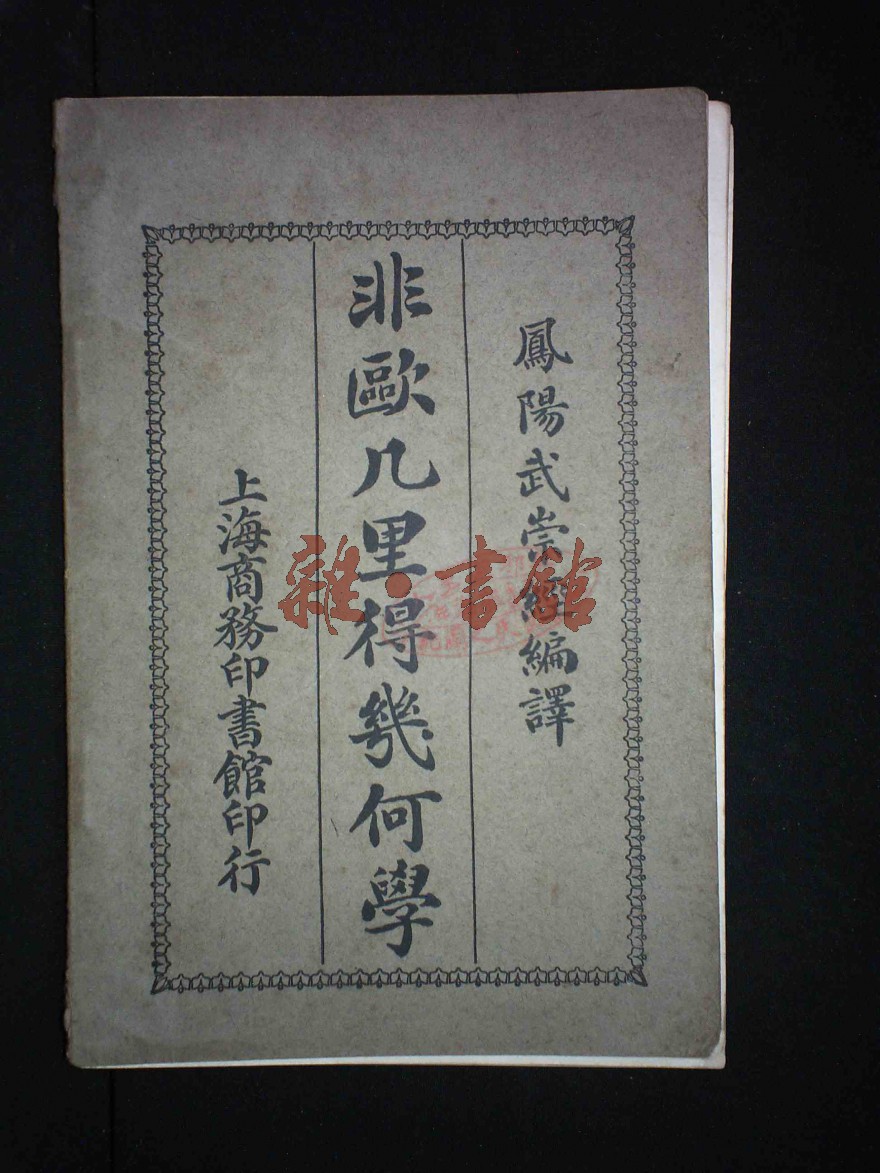 鳳陽武崇經編譯
非歐几里得幾何學
上海商務印書館印行
雜·書館